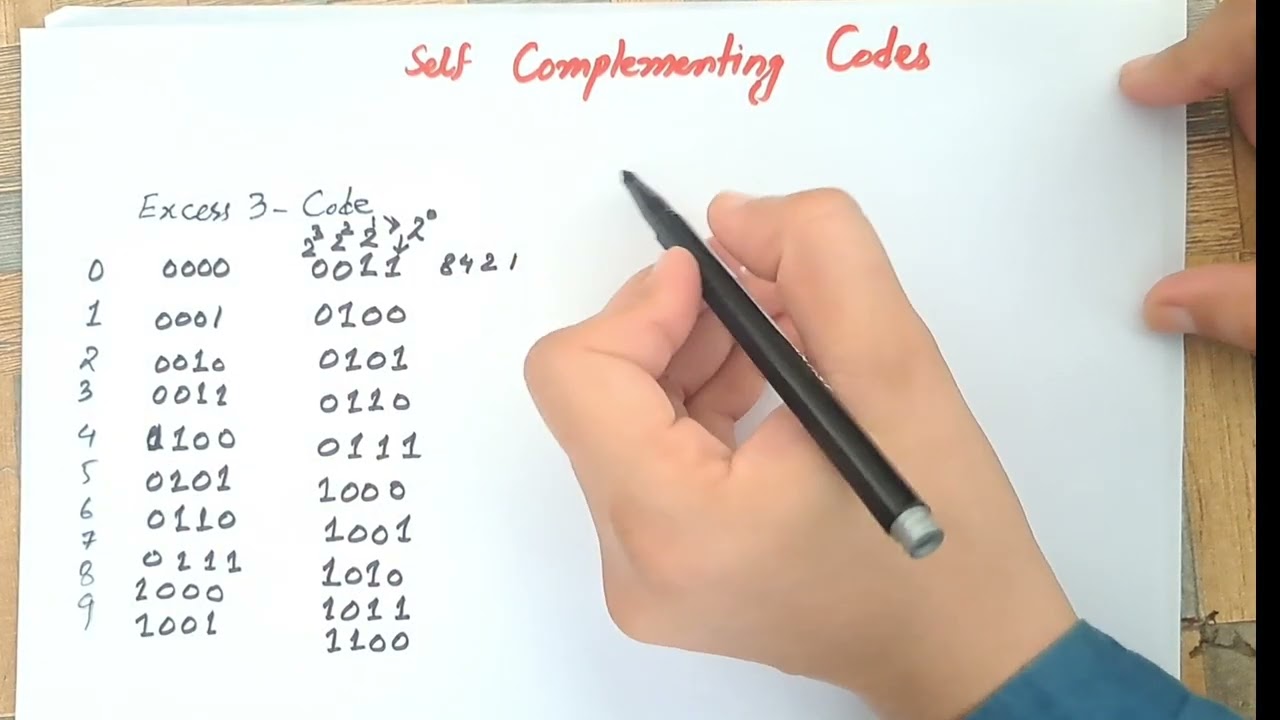 Self Complementing Codes
Excess 3 - Code
2³ 2² 2¹ 2⁰
0 0000 0011 8421
1 0001 0100
2 0010 0101
3 0011 0110
4 0100 0111
5 0101 1000
6 0110 1001
7 0111 1010
8 1000 1011
9 1001 1100